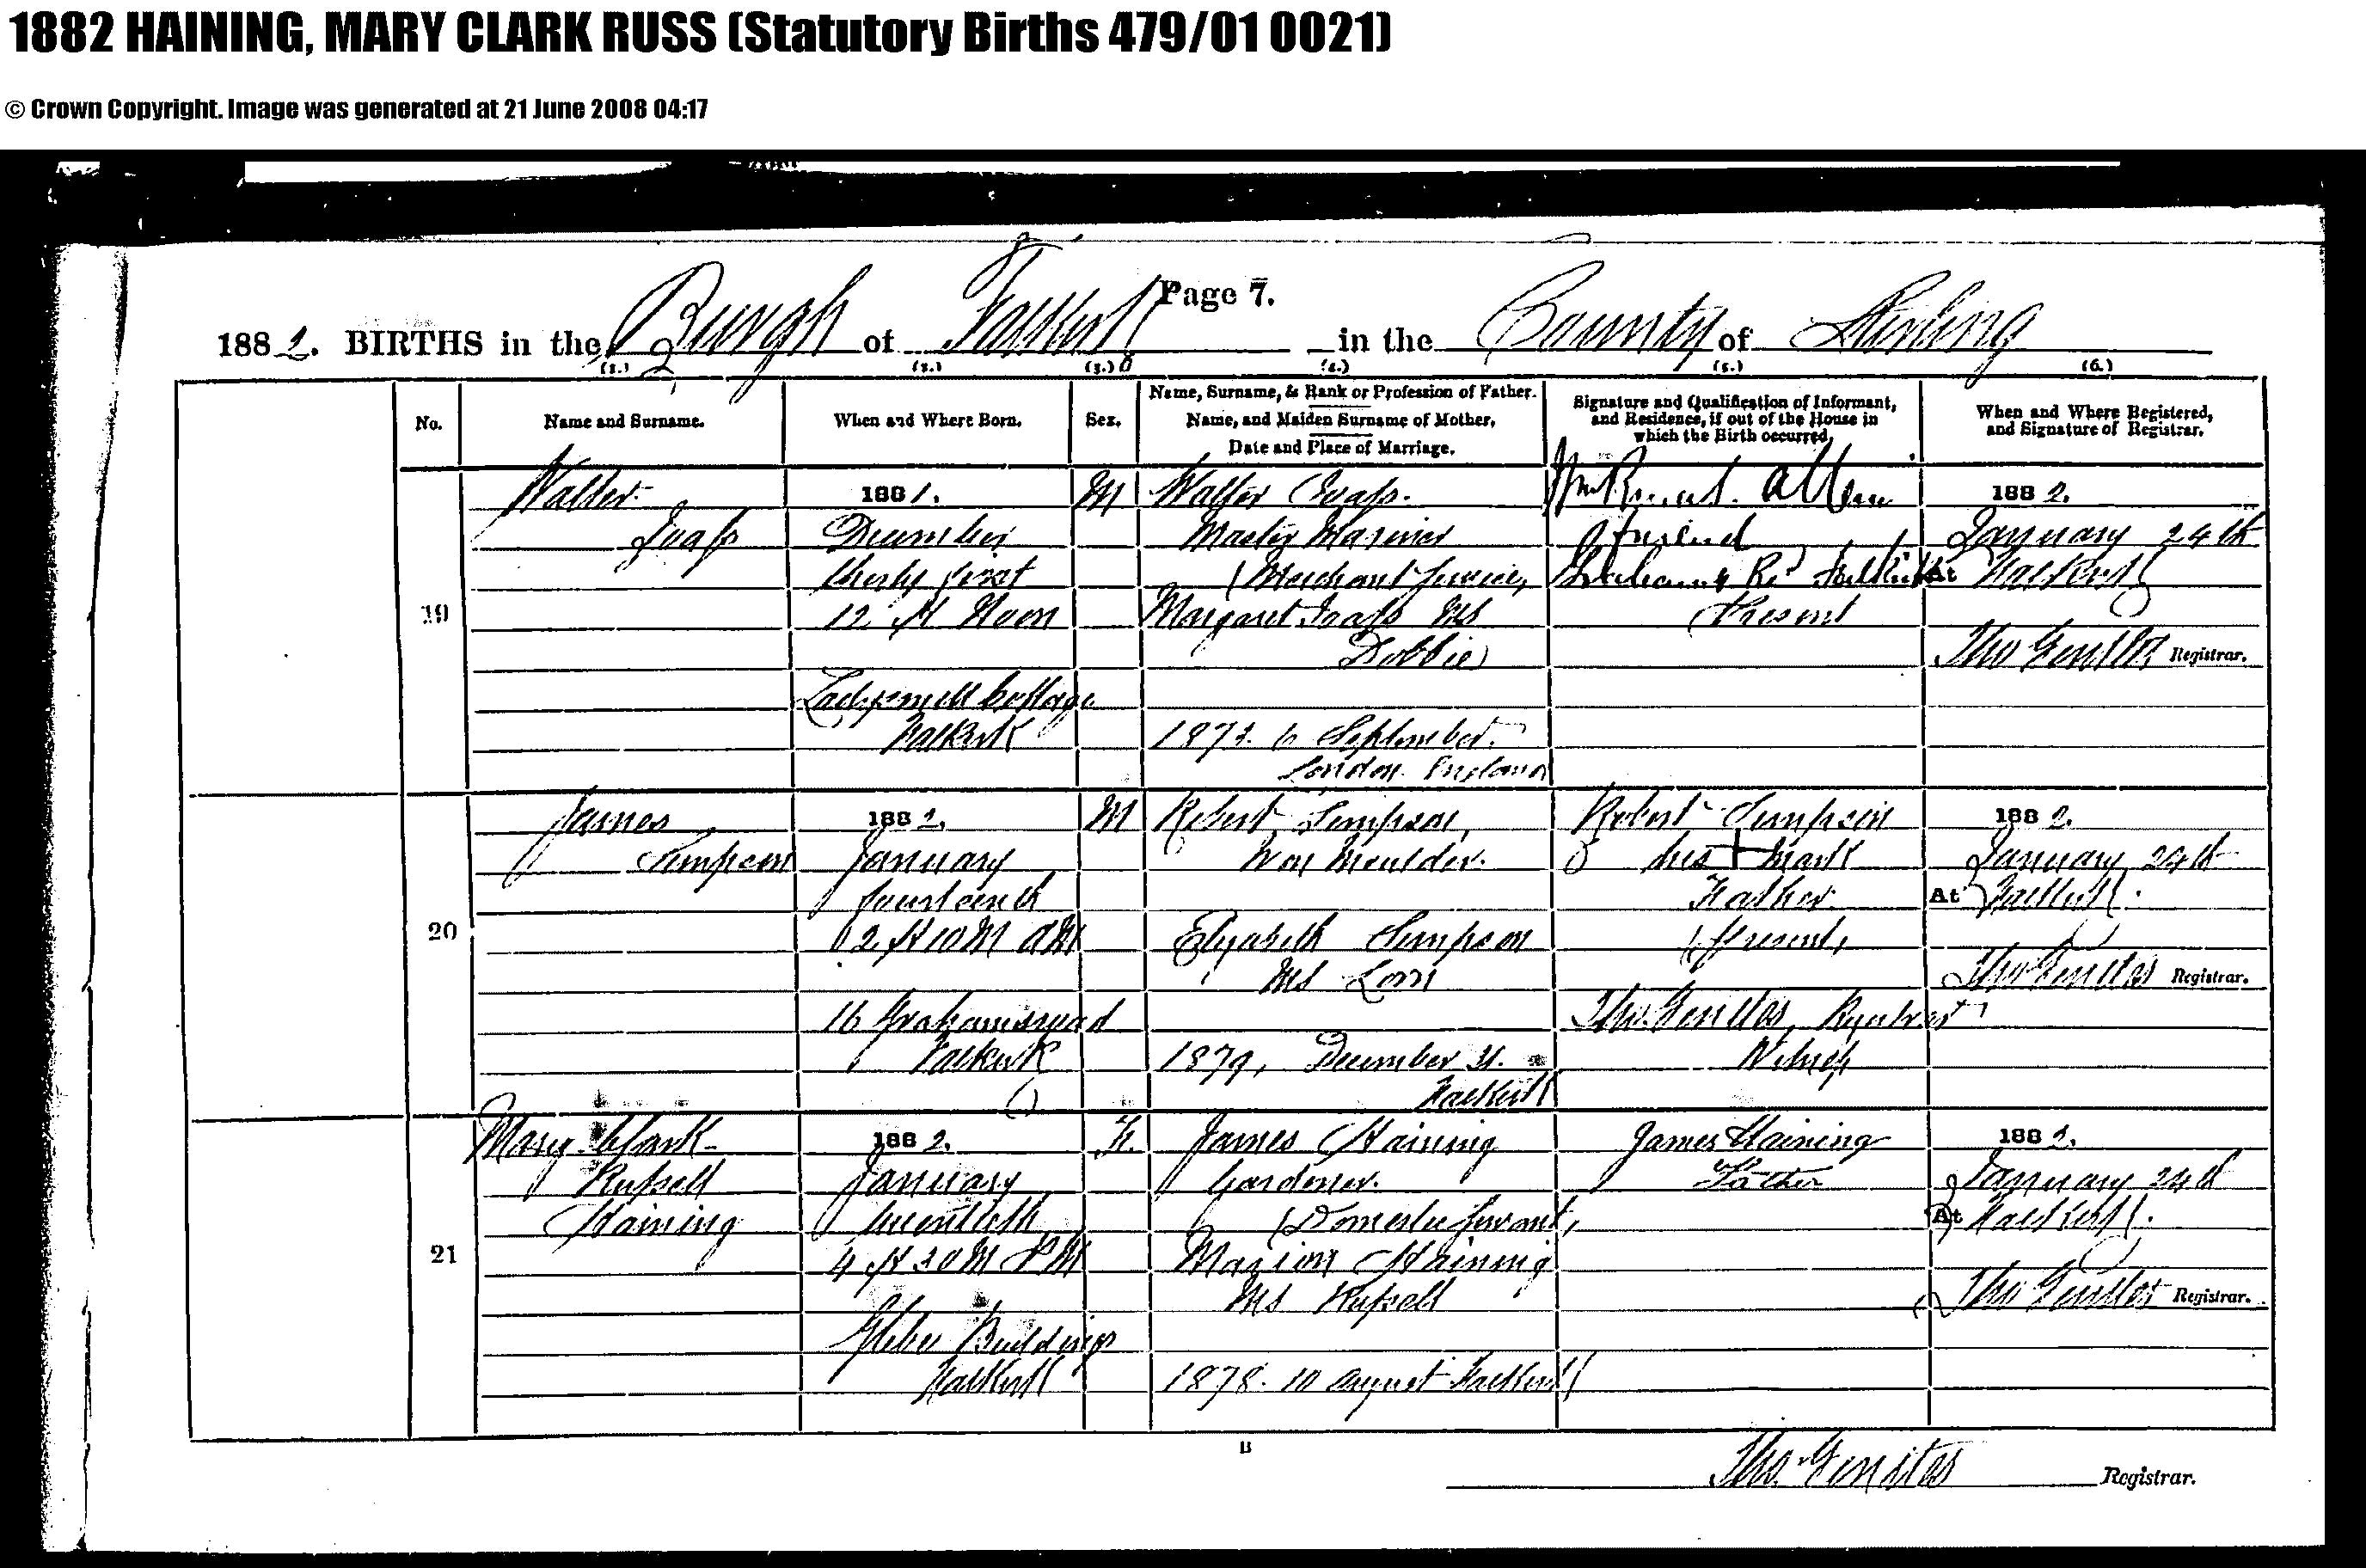 1882 HAINING, MARY CLARK RUSS (Statutory Births 479/01 0021)
© Crown Copyright. Image was generated at 21 June 2008 04:17
Page 7.
1882. BIRTHS in the Burgh of Falkirk in the County of Stirling
(1.) (2.) (3.) (4.) (5.) (6.)
No.
Name and Surname.
When and Where Born.
Sex.
Name, Surname, & Rank or Profession of Father.
Name, and Maiden Surname of Mother.
Date and Place of Marriage.
Signature and Qualification of Informant,
and Residence, if out of the House in
which the Birth occurred.
When and Where Registered,
and Signature of Registrar.
19
Walter
1881.
December
thirty first
12 H Noon
Cottage
Falkirk
M
Walter
Master Mariner
(Merchant Service)
Margaret MS
Dobbie
6 September
London England
friend
Falkirk
Present
1882.
January 24th
At Falkirk
Tho
Registrar.
20
James
Simpson
1882.
January
fourteenth
2 H 10 M AM
16 Grahamsroad
Falkirk
M
Robert Simpson
Iron Moulder.
Elizabeth Simpson
MS
1879, December 31.
Falkirk
Robert Simpson
his + mark
Father.
(Present)
Tho Registrar
Witness
1882.
January 24th
At Falkirk.
Tho
Registrar.
21
Mary Clark
Rufsell
Haining
1882.
January
twentieth
4 H 30 M PM
Glebe Buildings
Falkirk
F.
James Haining
Gardener.
(Domestic Servant)
Marion Haining
MS Rufsell
1878. 10 August Falkirk
James Haining
Father
1882.
January 24th
At Falkirk.
Tho
Registrar.
B
Tho.
Registrar.